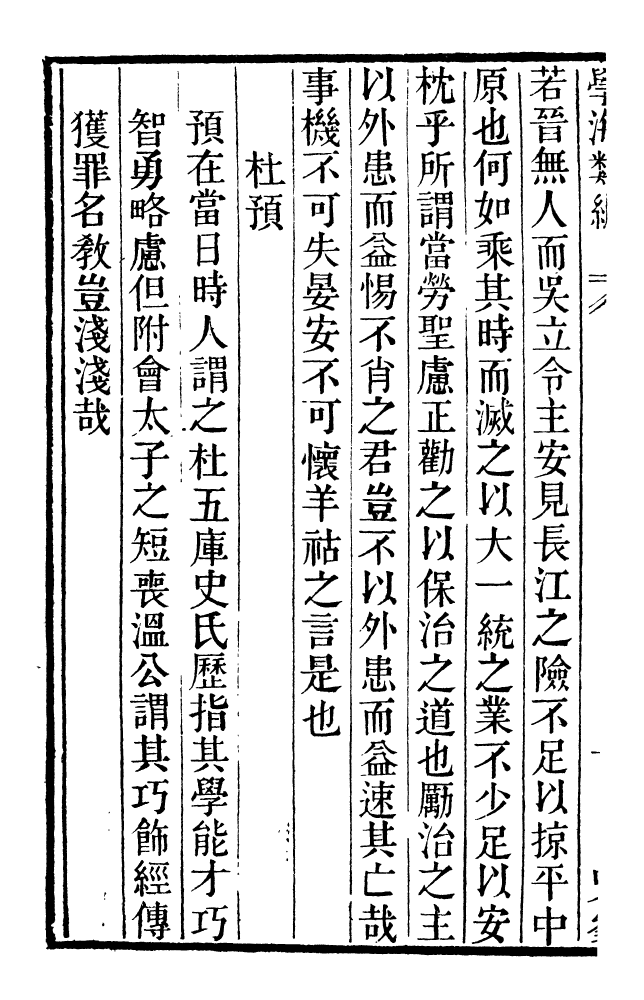 學海類編
若晉無人而吳立令主安見長江之險不足以掠平中
原也何如乘其時而滅之以大一統之業不少足以安
枕乎所謂當勞聖慮正勸之以保治之道也勵治之主
以外患而益惕不肖之君豈不以外患而益速其亡哉
事機不可失晏安不可懷羊祜之言是也
杜預
預在當日時人謂之杜五庫史氏歷指其學能才巧
智勇略慮但附會太子之短喪溫公謂其巧飾經傳
獲罪名教豈淺淺哉